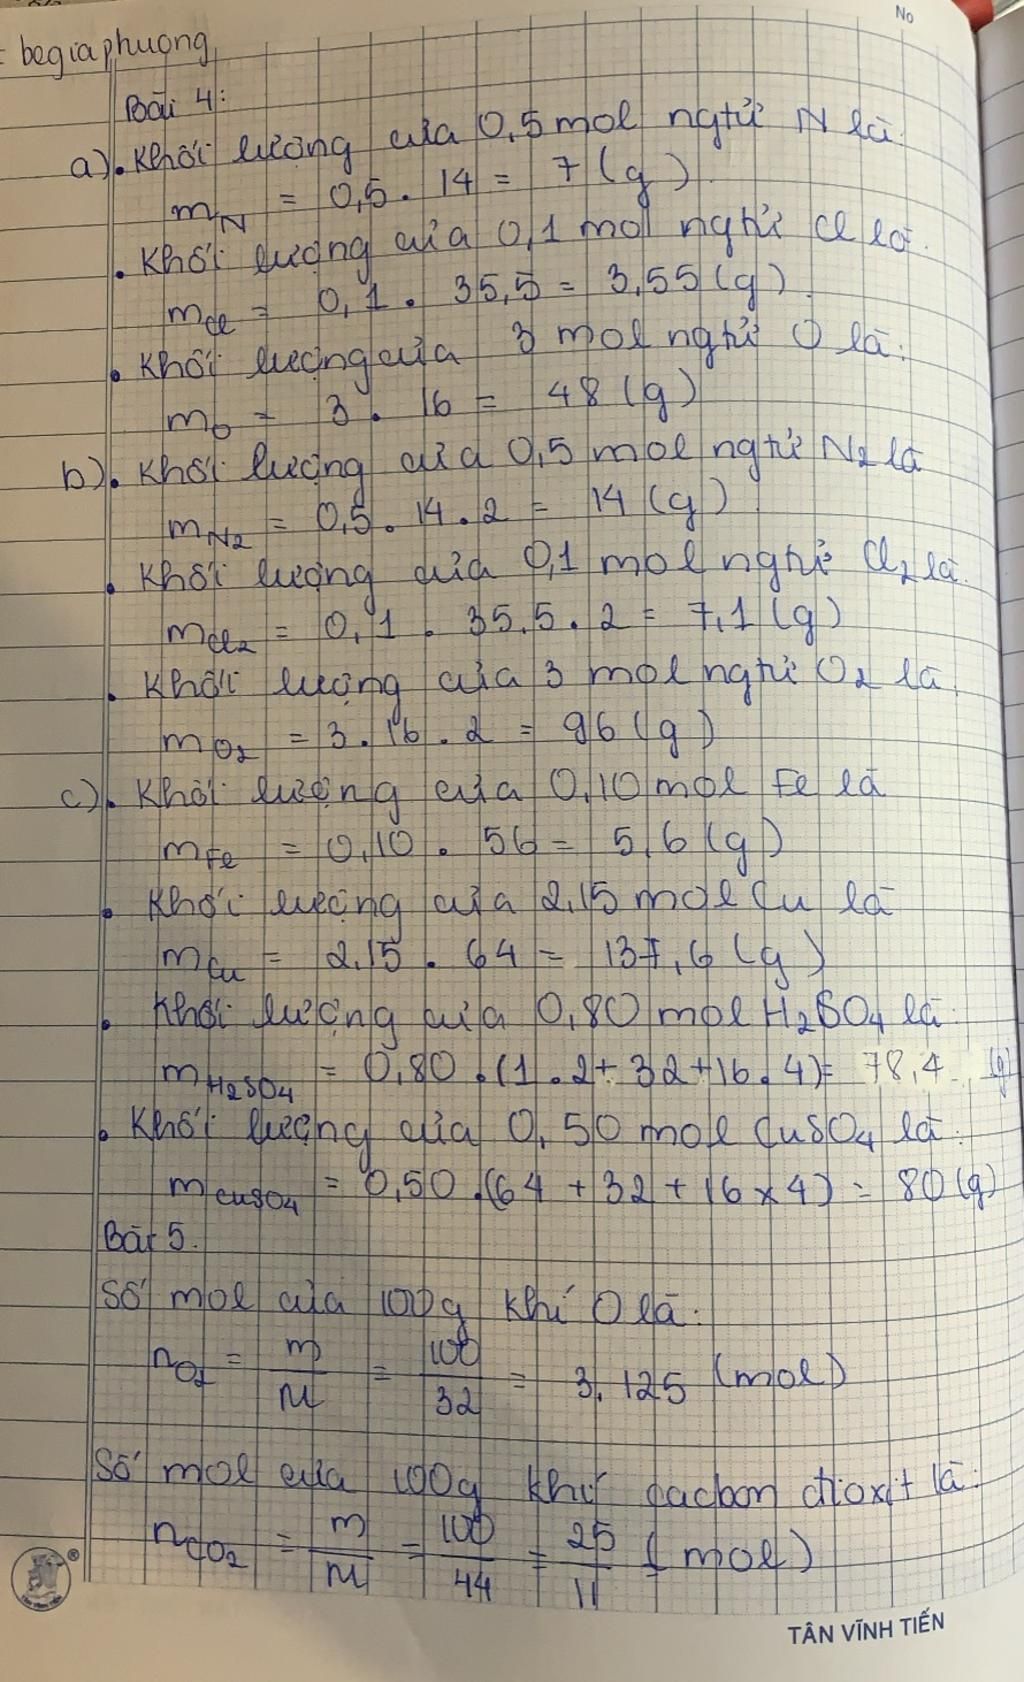 No
begiaphuong
Bài 4:
a). Khối lượng của 0,5 mol ngtử N là:
mN = 0,5 . 14 = 7 (g)
. Khối lượng của 0,1 mol ngtử Cl là:
mCl = 0,1 . 35,5 = 3,55 (g)
. Khối lượng của 3 mol ngtử O là:
mO = 3 . 16 = 48 (g)
b). Khối lượng của 0,5 mol ngtử N2 là
mN2 = 0,5 . 14 . 2 = 14 (g)
. Khối lượng của 0,1 mol ngtử Cl2 là.
mCl2 = 0,1 . 35,5 . 2 = 7,1 (g)
. Khối lượng của 3 mol ngtử O2 là
mO2 = 3 . 16 . 2 = 96 (g)
c). Khối lượng của 0,10 mol Fe là
mFe = 0,10 . 56 = 5,6 (g)
. Khối lượng của 2,15 mol Cu là
mCu = 2,15 . 64 = 137,6 (g)
. Khối lượng của 0,80 mol H2SO4 là:
mH2SO4 = 0,80 . (1 . 2 + 32 + 16 . 4) = 78,4 (g)
. Khối lượng của 0,50 mol CuSO4 là:
mCuSO4 = 0,50 . (64 + 32 + 16 x 4) = 80 (g)
Bài 5.
Số mol của 100g khí O là:
nO2 = m/M = 100/32 = 3,125 (mol)
Số mol của 100g khí cacbon đioxit là:
nCO2 = m/M = 100/44 = 25/11 (mol)
®
TÂN VĨNH TIẾN